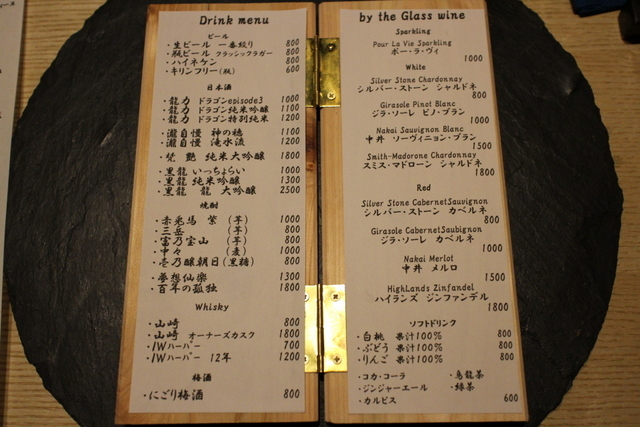 Drink menu
ビール
・生ビール 一番絞り 800
・瓶ビール クラッシックラガー 800
・ハイネケン 800
・キリンフリー(瓶) 600
日本酒
・龍力 ドラゴンepisode3 1000
・龍力 ドラゴン純米吟醸 1100
・龍力 ドラゴン特別純米 1200
・瀧自慢 神の穂 1100
・瀧自慢 滝水流 1200
・梵 艶 純米大吟醸 1800
・黒龍 いっちょらい 1000
・黒龍 純米吟醸 1300
・黒龍 龍 大吟醸 2500
焼酎
・赤兎馬 紫 (芋) 1000
・三岳 (芋) 800
・富乃宝山 (芋) 800
・中々 (麦) 1000
・壱乃醸朝日(黒糖) 800
・夢想仙楽 1300
・百年の孤独 1800
Whisky
・山崎 800
・山崎 オーナーズカスク 1800
・IWハーパー 700
・IWハーパー 12年 1200
梅酒
・にごり梅酒 800
by the Glass wine
Sparkling
Pour La Vie Sparkling
ポー・ラ・ヴィ
1000
White
Silver Stone Chardonnay
シルバー・ストーン シャルドネ
800
Girasole Pinot Blanc
ジラ・ソーレ ピノ・ブラン
1000
Nakai Sauvignon Blanc
中井 ソーヴィニョン・ブラン
1500
Smith-Madorone Chardonnay
スミス・マドローン シャルドネ
1800
Red
Silver Stone CabernetSauvignon
シルバー・ストーン カベルネ
800
Girasole CabernetSaubignon
ジラ・ソーレ カベルネ
1000
Nakai Merlot
中井 メルロ
1500
HighLands Zinfandel
ハイランズ ジンファンデル
1800
ソフトドリンク
・白桃 果汁100% 800
・ぶどう 果汁100% 800
・りんご 果汁100% 800
・コカ・コーラ ・烏龍茶
・ジンジャーエール ・緑茶
・カルピス 600